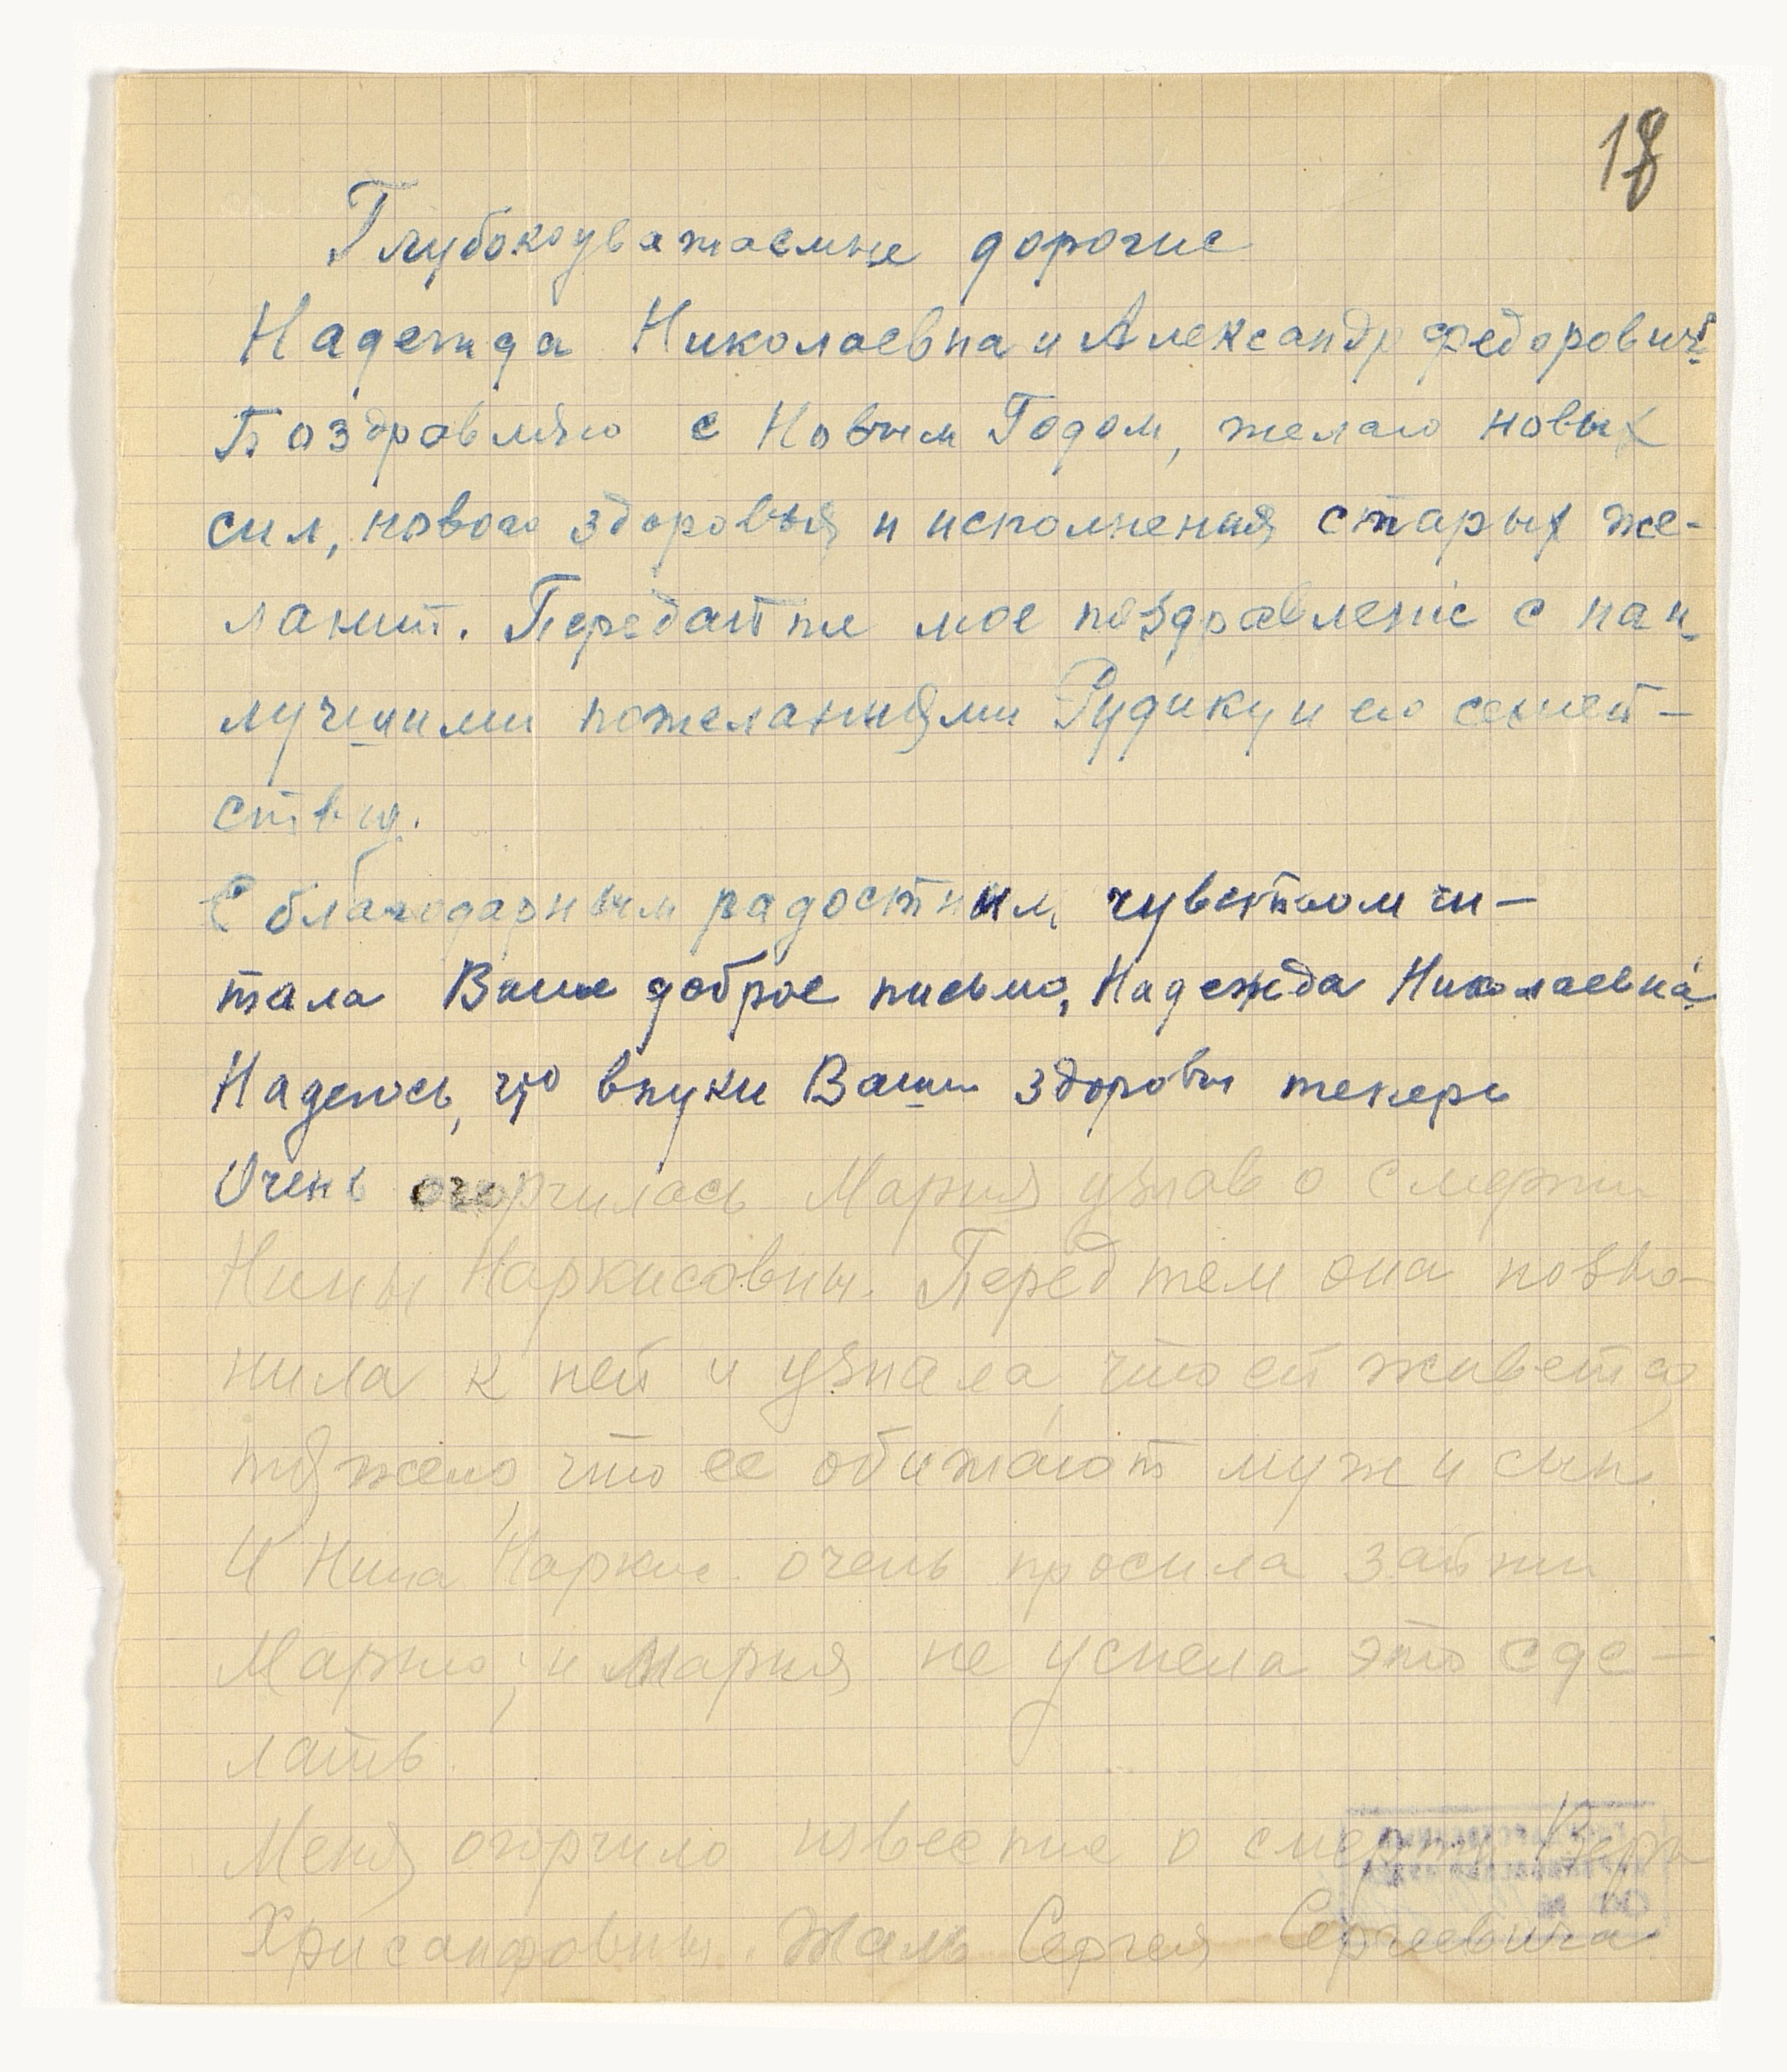 18
Глубокоуважаемые дорогие
Надежда Николаевна и Александр Федорович!
Поздравляю с Новым Годом, желаю новых
сил, нового здоровья и исполнения старых же-
ланий. Передайте мое поздравление с наи
лучшими пожеланиями Рудику и его семей-
ству.
С благодарным радостным чувством чи-
тала Ваше доброе письмо, Надежда Николаевна!
Надеюсь, что внуки Ваши здоровы теперь
Очень огорчилась Мария узнав о смерти
Нины Наркисовны. Перед тем она позво-
нила к ней и узнала, что ей живется
тяжело, что ее обижают муж и сын.
И Нина Наркис. очень просила зайти
Марию, и Мария не успела это сде-
лать.
Меня огорчило известие о смерти Веры
Хрисанфовны. Жаль Сергея Сергеевича